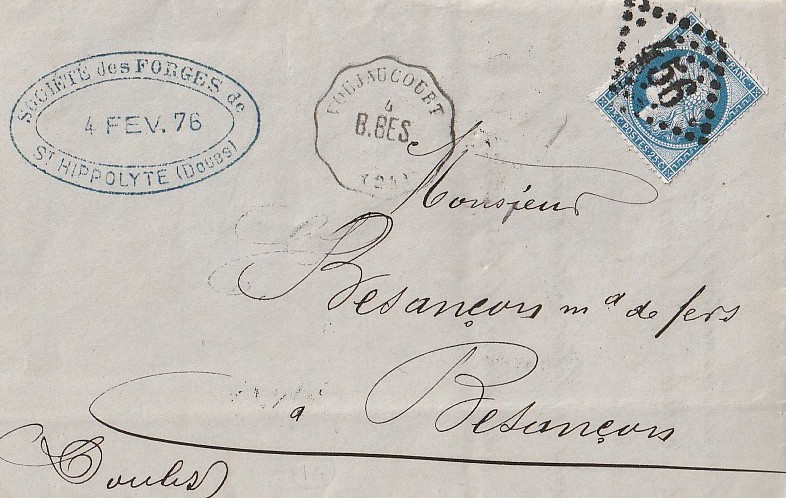 SOCIÉTÉ des FORGES de
4 FEV. 76
ST HIPPOLYTE (DOUBS)
VOUJAUCOURT
4
B.BES.
Monsieur
Besançon md de fers
a Besançon
Doubs